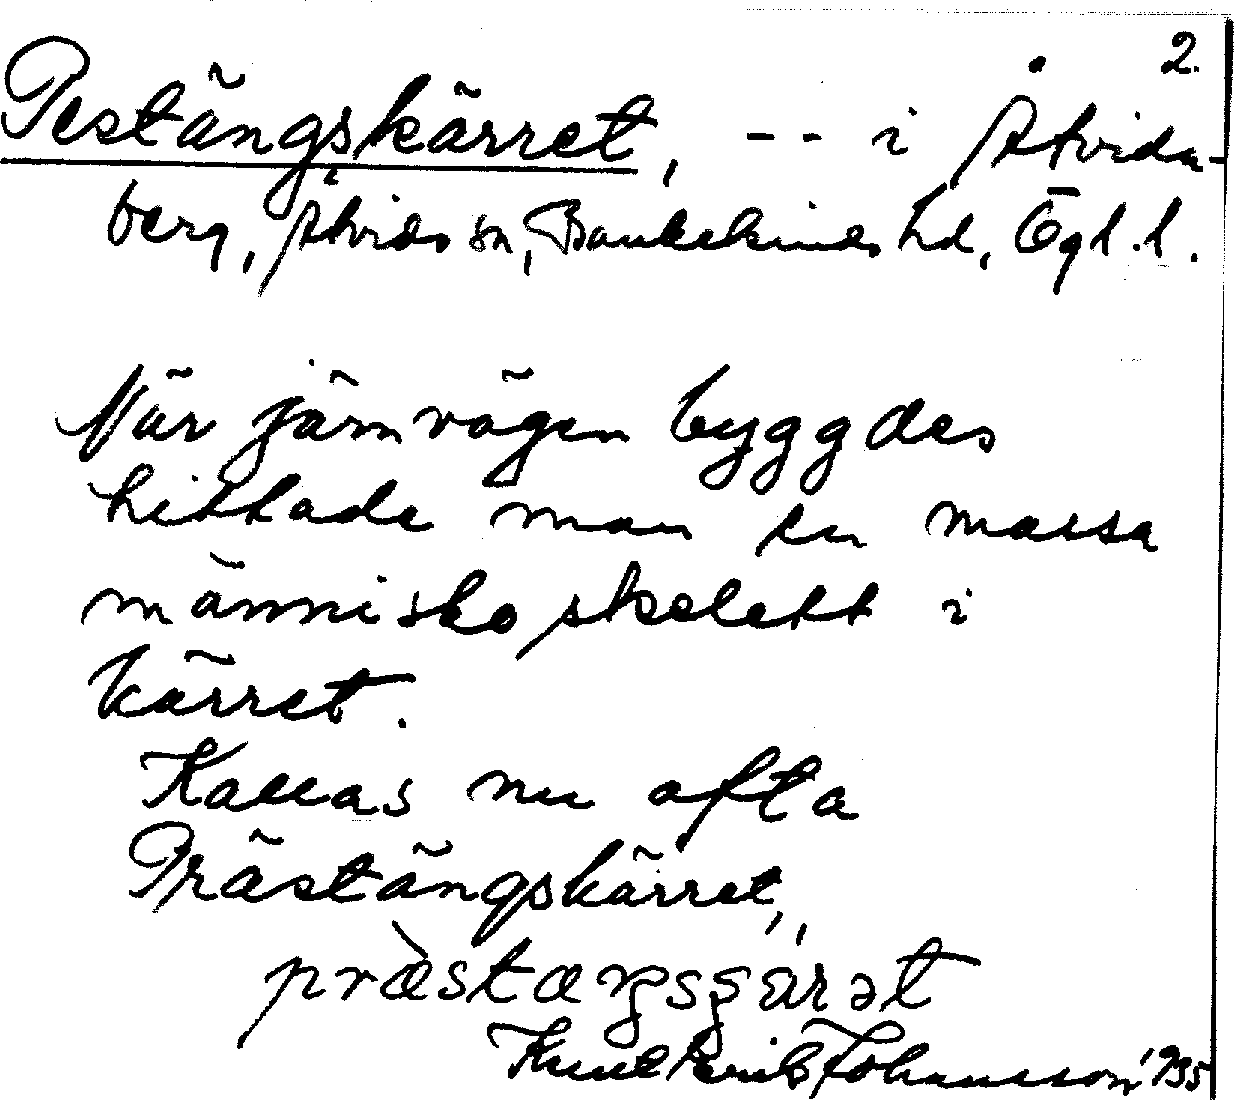 2.
Pestängskärret, -- i Åtvida-
berg, Åtvids sn, Bankekinds hd, Ögl. l.
När järnvägen byggdes
hittade man en massa
människoskelett i
kärret.
Kallas nu ofta
Prästängskärret,
Knut Erik Johansson 1935